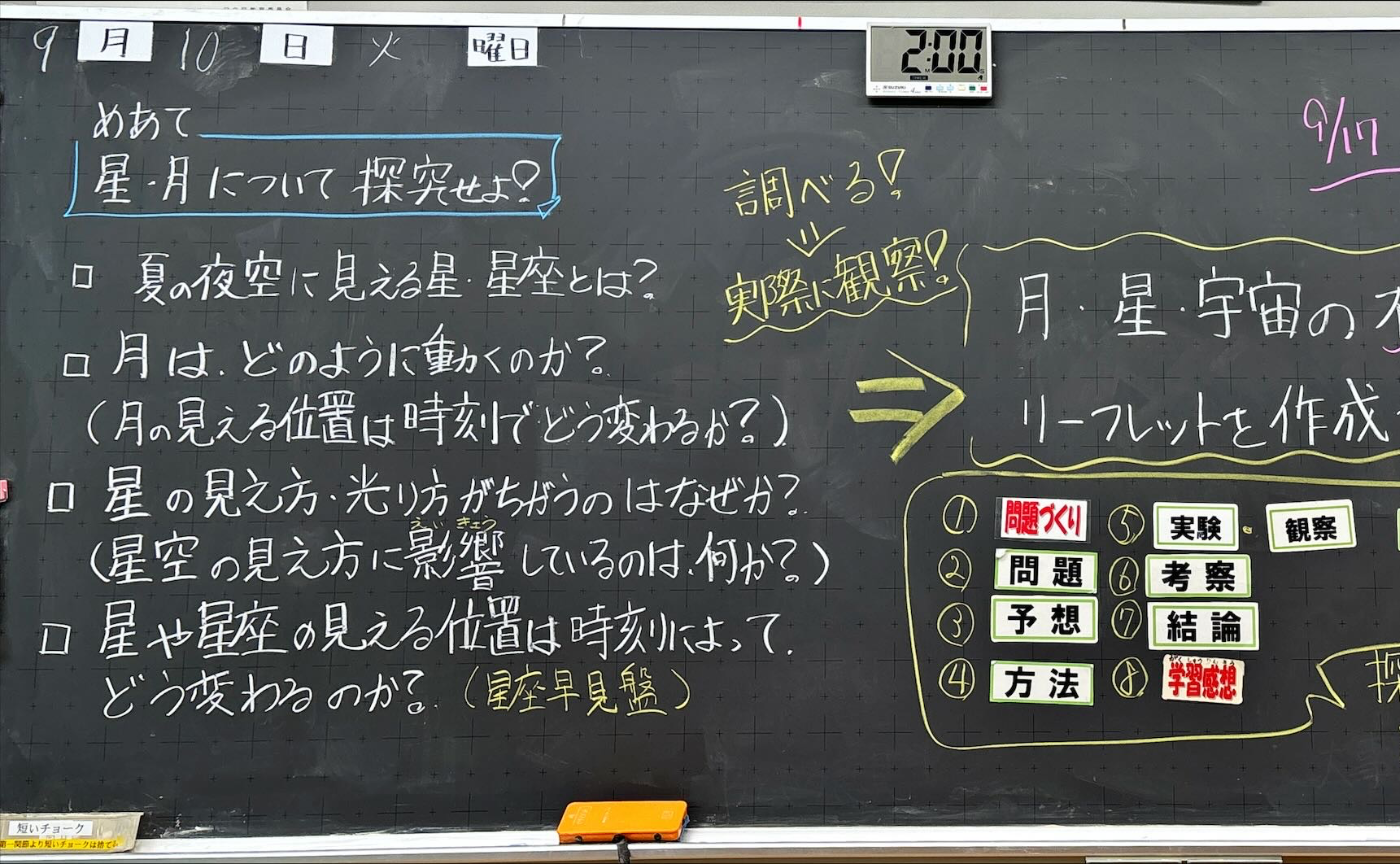 9月10日火曜日
2:00
SUZUKI
めあて
星・月について探究せよ!
□ 夏の夜空に見える星・星座とは?
□ 月は、どのように動くのか?
(月の見える位置は時刻でどう変わるか?)
□ 星の見え方・光り方がちがうのはなぜか?
えい きょう
(星空の見え方に影響しているのは、何か?)
□ 星や星座の見える位置は時刻によって、
どう変わるのか?(星座早見盤)
調べる!
実際に観察!
⇒
9/17
月・星・宇宙の
リーフレットを作成
① 問題づくり
② 問題
③ 予想
④ 方法
⑤ 実験・観察
⑥ 考察
⑦ 結論
⑧ 学習感想
探
短いチョーク
第一関節より短いチョークは捨て